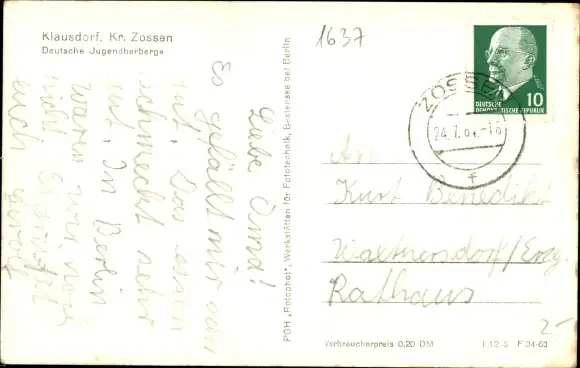 Klausdorf, Kr. Zossen
Deutsche Jugendherberge
Liebe Oma!
Es gefällt mir sehr
gut. Das essen
schmeckt sehr
gut. In Berlin
waren wir noch
nicht. Es grüßt
euch
PGH „Rotophot", Werkstätten für Fototechnik, Bestensee bei Berlin
1637
DEUTSCHE
DEMOKRATISCHE REPUBLIK
10
ZOSSEN
24.7.64.-18
f
An
Kurt Benedikt
Walthersdorf/Erzg.
Rathaus
2-
Verbraucherpreis 0,20 DM
I 12 5 F 34-63